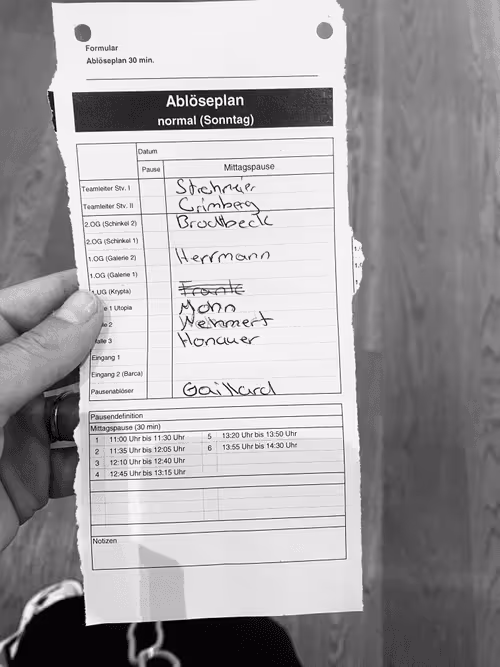 Formular
Ablöseplan 30 min.
Ablöseplan
normal (Sonntag)
Datum
Pause Mittagspause
Teamleiter Stv. I Strohmeier
Teamleiter Stv. II Grimberg
2.OG (Schinkel 2) Brodtbeck
2.OG (Schinkel 1)
1.OG (Galerie 2) Herrmann
1.OG (Galerie 1)
1.UG (Krypta) Frank
1 Utopia Mohn
2 Mehmert
Halle 3 Honauer
Eingang 1
Eingang 2 (Barca)
Pausenablöser Gaillard
Pausendefinition
Mittagspause (30 min)
1 11:00 Uhr bis 11:30 Uhr 5 13:20 Uhr bis 13:50 Uhr
2 11:35 Uhr bis 12:05 Uhr 6 13:55 Uhr bis 14:30 Uhr
3 12:10 Uhr bis 12:40 Uhr
4 12:45 Uhr bis 13:15 Uhr
Notizen